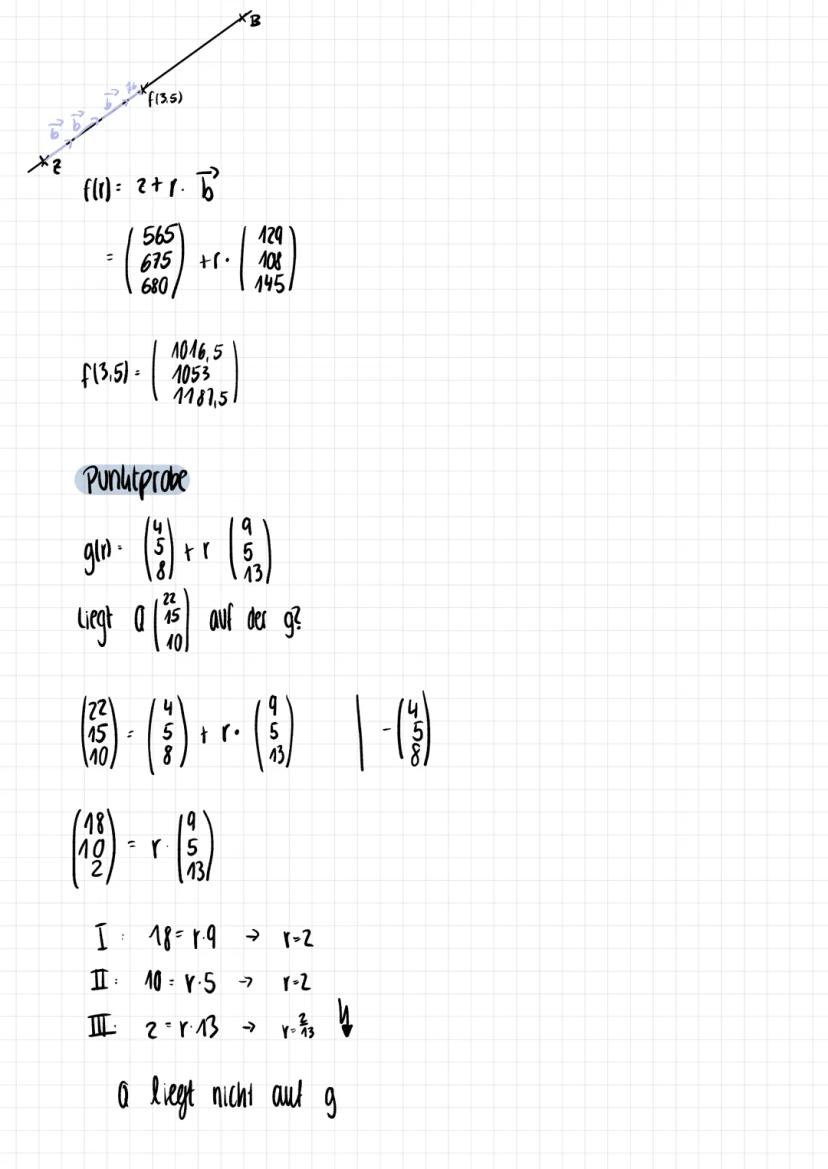 B
f(3.5)
b⃗ b⃗ b⃗
z
f(r) = z + r · b⃗
= (565 675 680) + r · (129 108 145)
f(3,5) = (1016,5 1053 1187,5)
Punktprobe
g(r) = (4 5 8) + r (9 5 13)
Liegt Q (22 15 10) auf der g?
(22 15 10) = (4 5 8) + r · (9 5 13) | - (4 5 8)
(18 10 2) = r · (9 5 13)
I : 18 = r·9 → r=2
II : 10 = r·5 → r=2
III : 2 = r·13 → r= 2/13 ↯
Q liegt nicht auf g